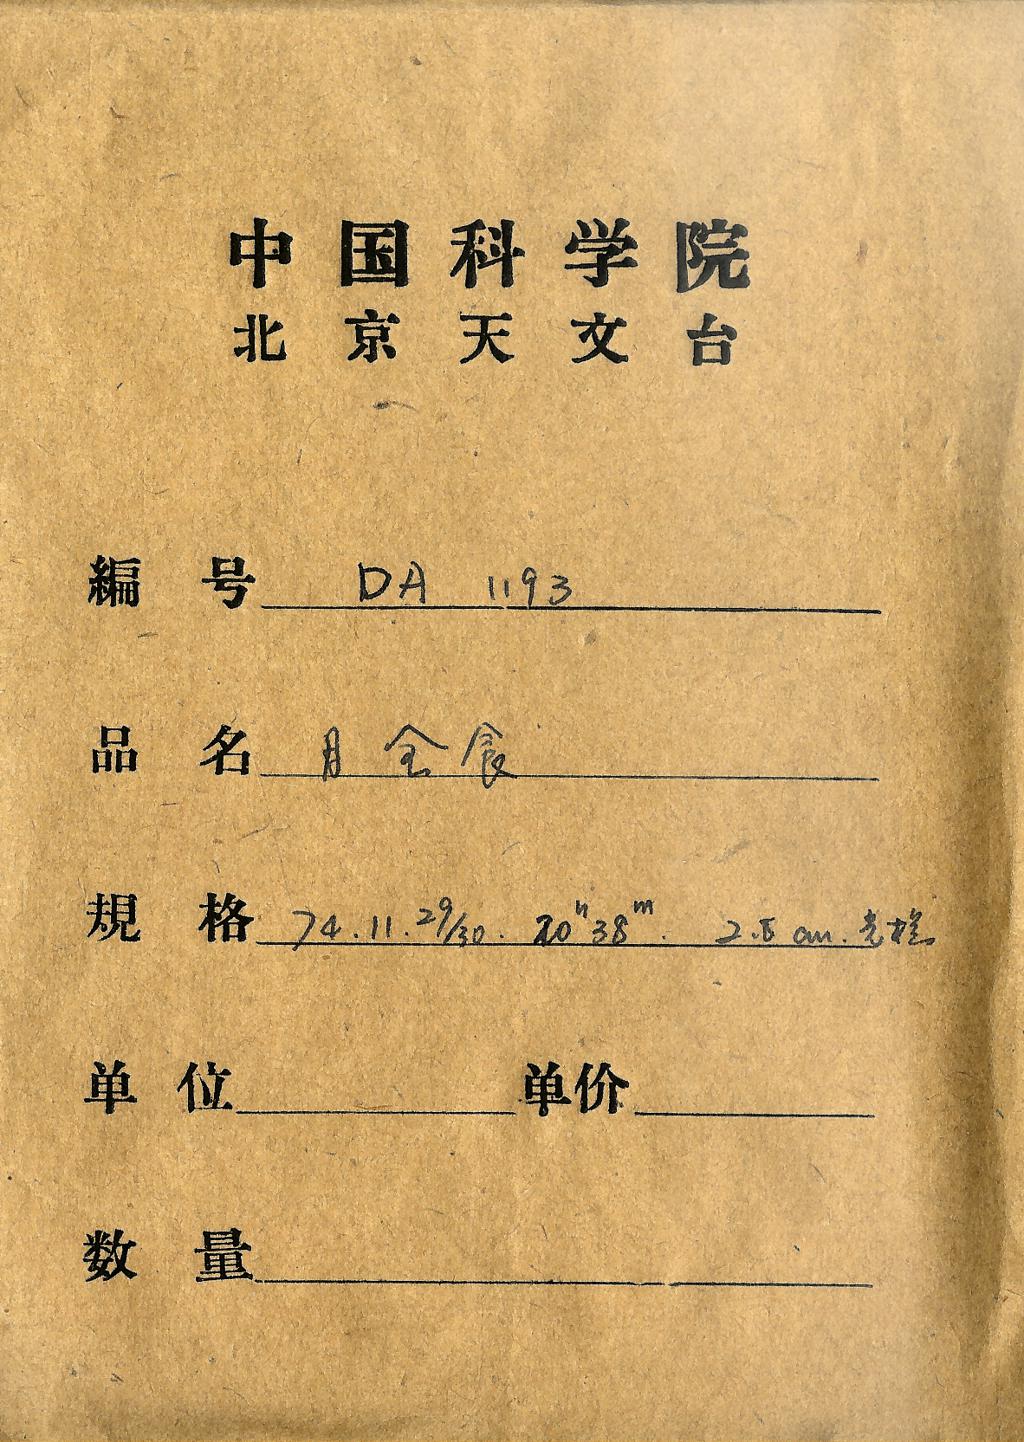 中国科学院
北京天文台
編号 DA 1193
品名 月全食
規格 74.11.29/30. 20h38m. 2.5 cm. 光栏
单位 单价
数量